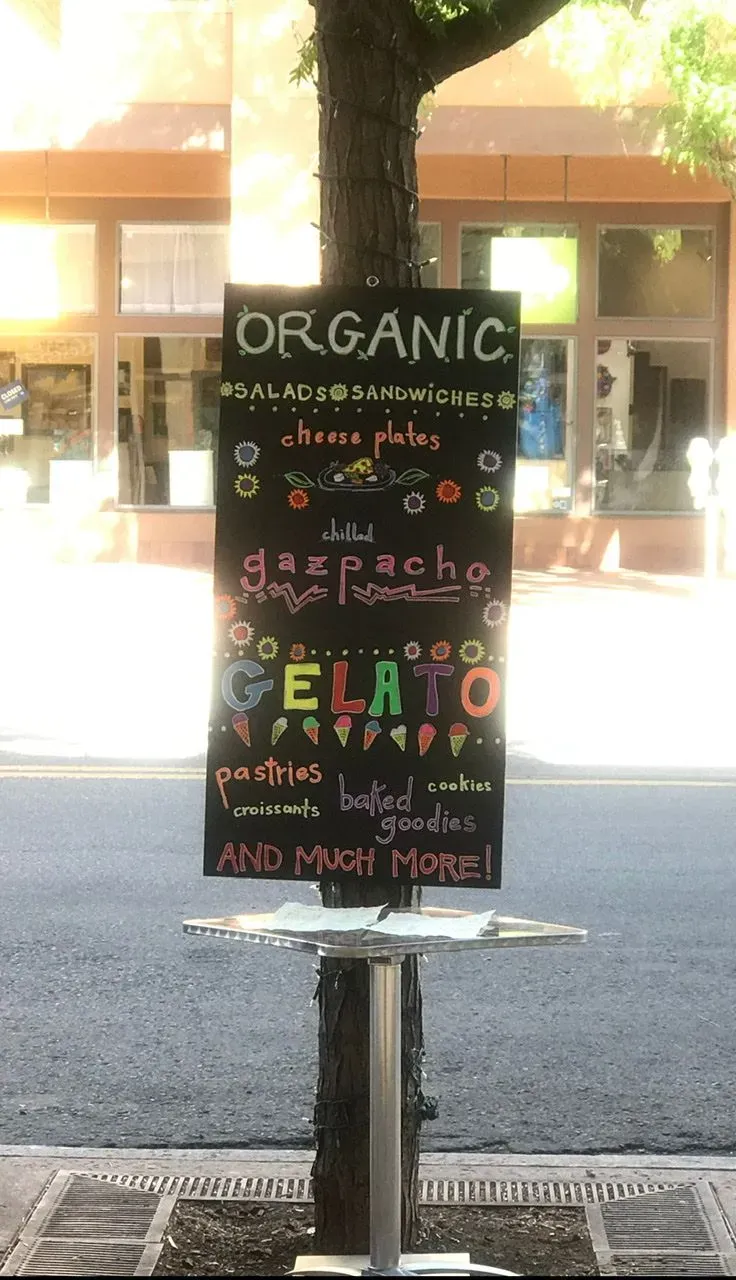 ORGANIC
SALADS SANDWICHES
cheese plates
chilled
gazpacho
GELATO
pastries
cookies
croissants
baked
goodies
AND MUCH MORE!
CLOSED